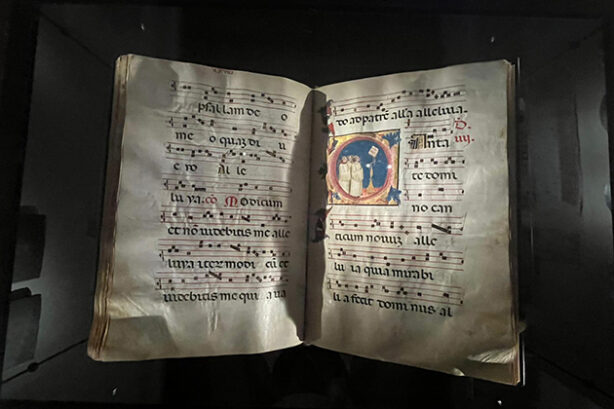 psallam de o
me o quaz di u
e ro al le
lu ya. co. Modicum
et no uidebitis me alle
luya iter modi cū et
uidebitis me qui a ua
do ad patrē alla alleluia.
Anta
te domi
no can
ticum nouuz alle
lu ia quia mirabi
li a fecit domi nus al